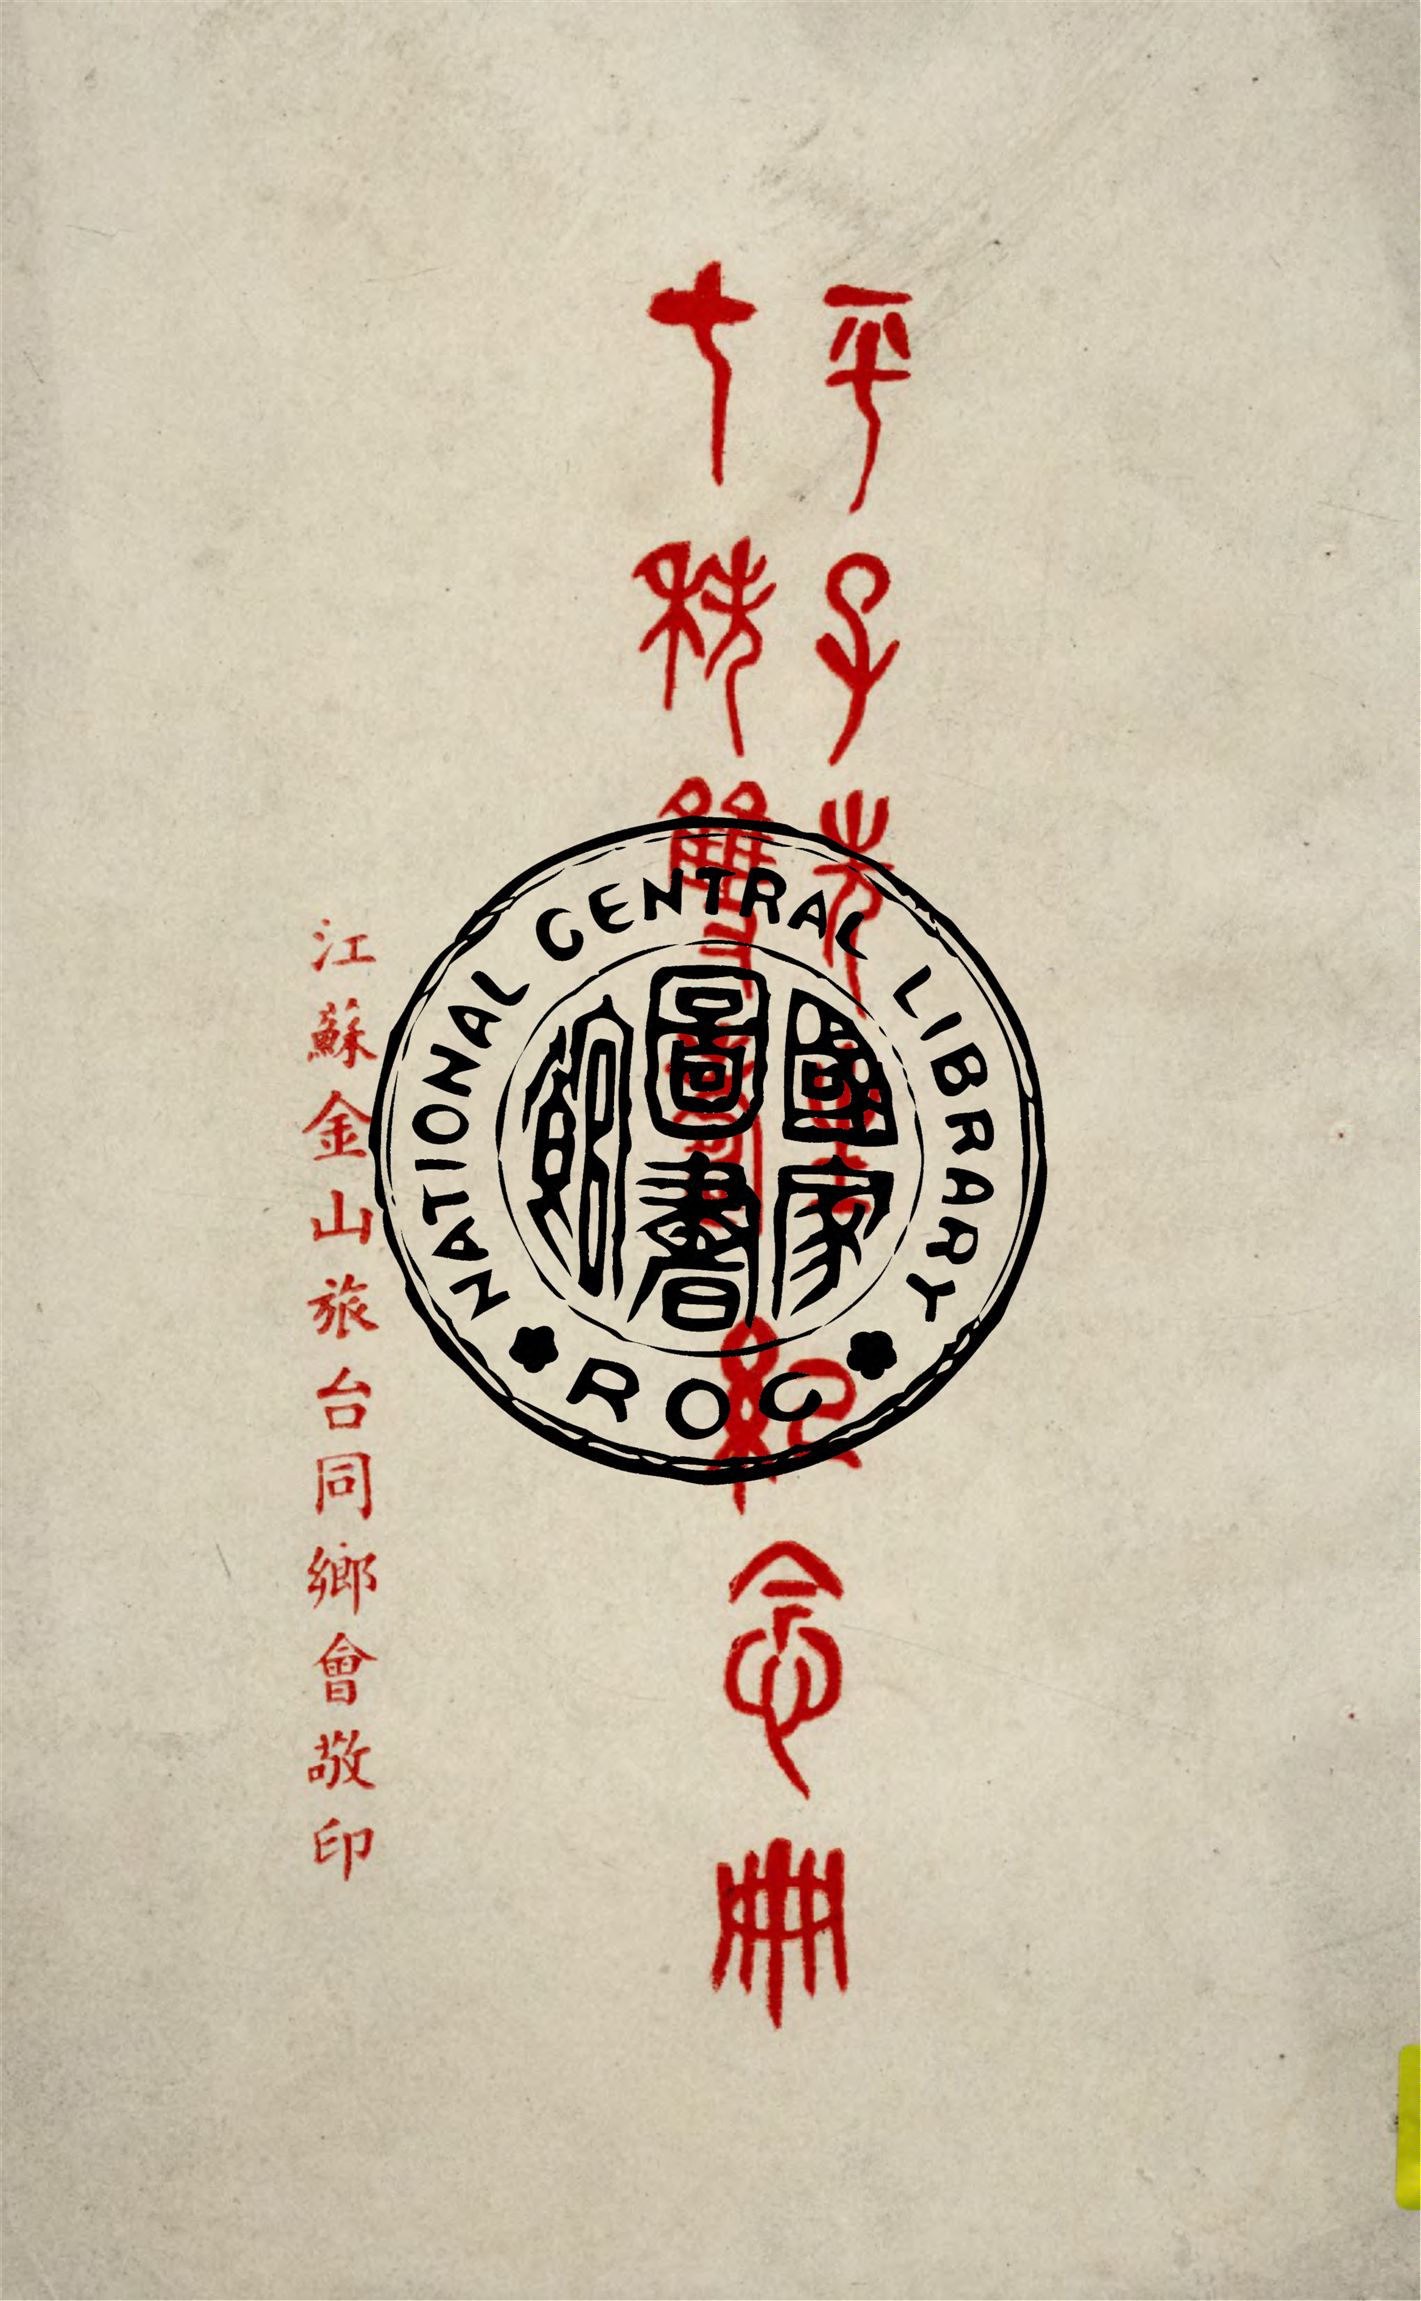 平子先生
七秩雙壽
紀念冊
江蘇金山旅台同鄉會敬印
NATIONAL CENTRAL LIBRARY
國家
圖書
館
ROC